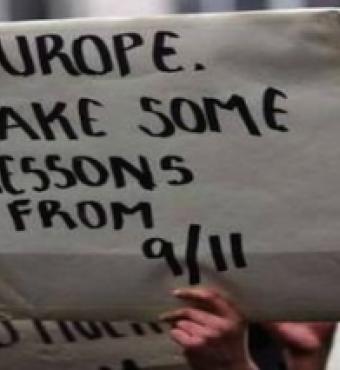 UROPE.
AKE SOME
LESSONS
FROM
9/11